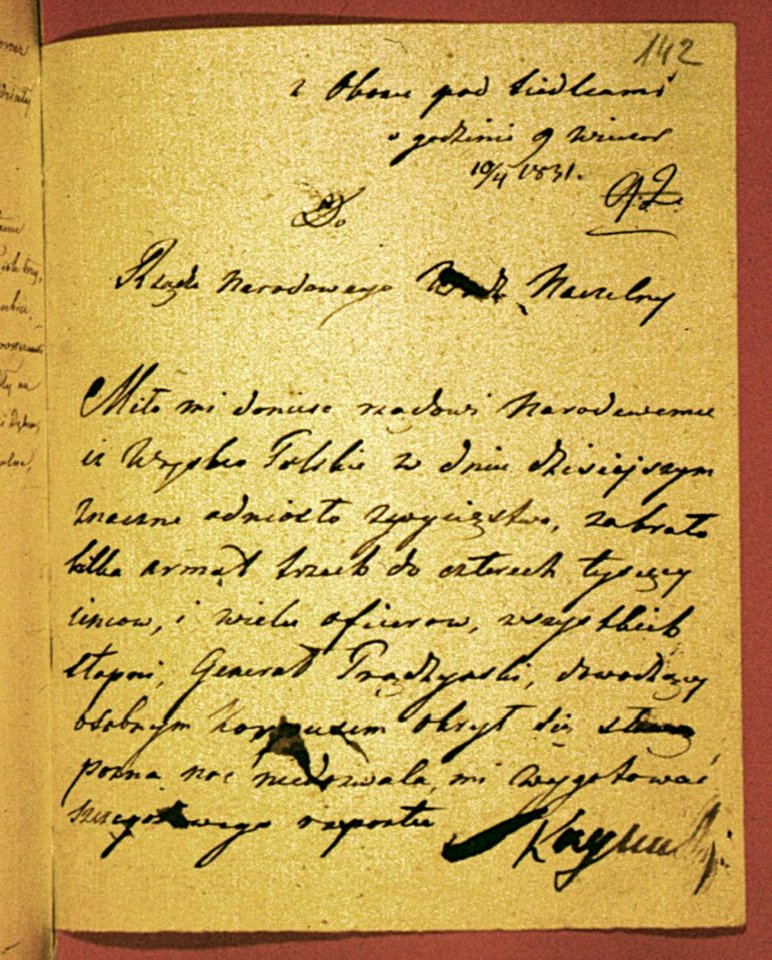 142
z Obozu pod Siedlcami
o godzinie 9 wieczor
10/4 1831.
Do
Rządu Narodowego Wodz Naczelny
Miło mi doniesc rządowi Narodowemu
iż Woysko Polskie w dniu dzisiejszym
znaczne odniosło zwycięstwo, zabrało
kilka armat trzech do czterech tysięcy
iencow, i wielu oficerow, wszystkich
stopni, Generał Prądzynski, dowodzący
osobnym korpusem okrył się sławą
pozna noc niedozwala, mi wygotować
szczegołowego raportu
Skrzynecki